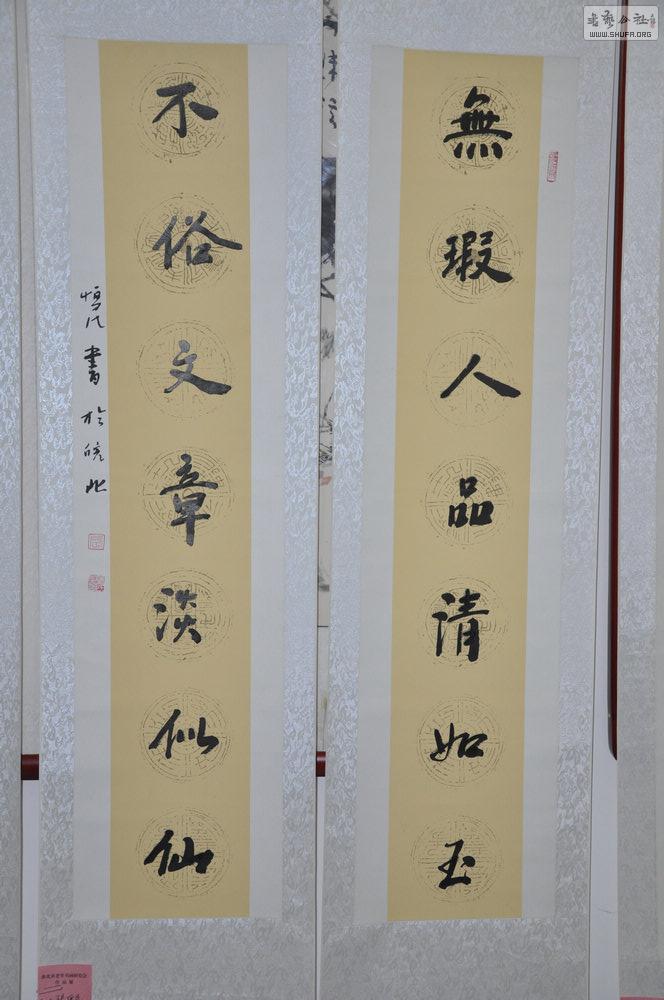 無瑕人品請如玉
不俗文章淡似仙
書於皖北
書藝公社
WWW.SHUFA.ORG